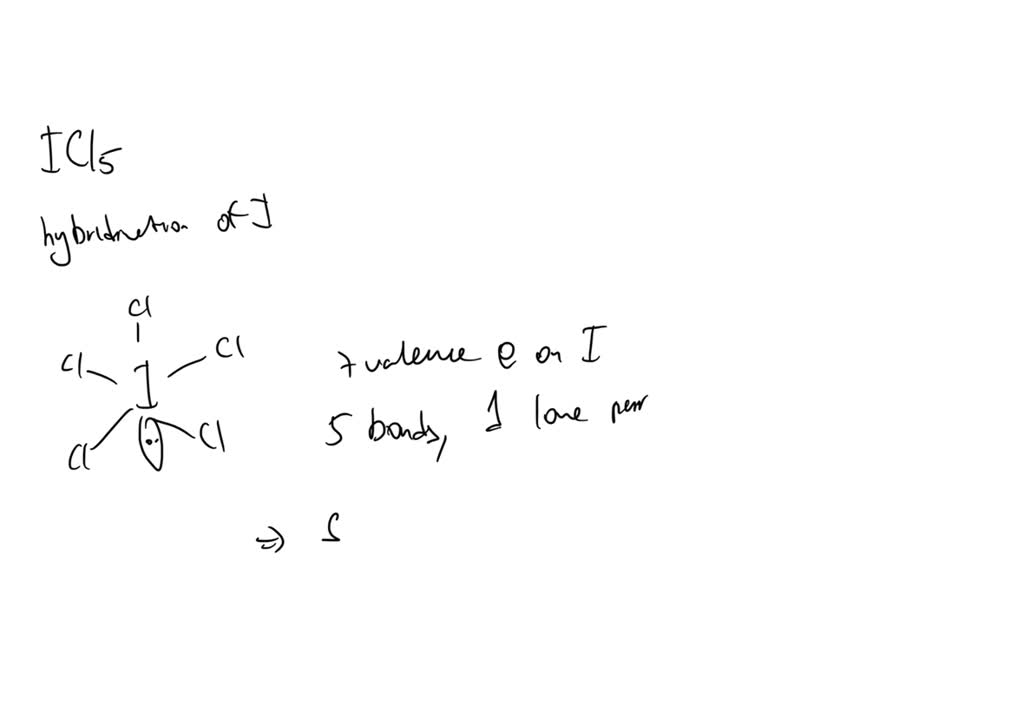 ICl5
hybridization of I
Cl
Cl Cl
I
Cl Cl
7 valence e on I
5 bonds, 1 lone pair
⇒ S